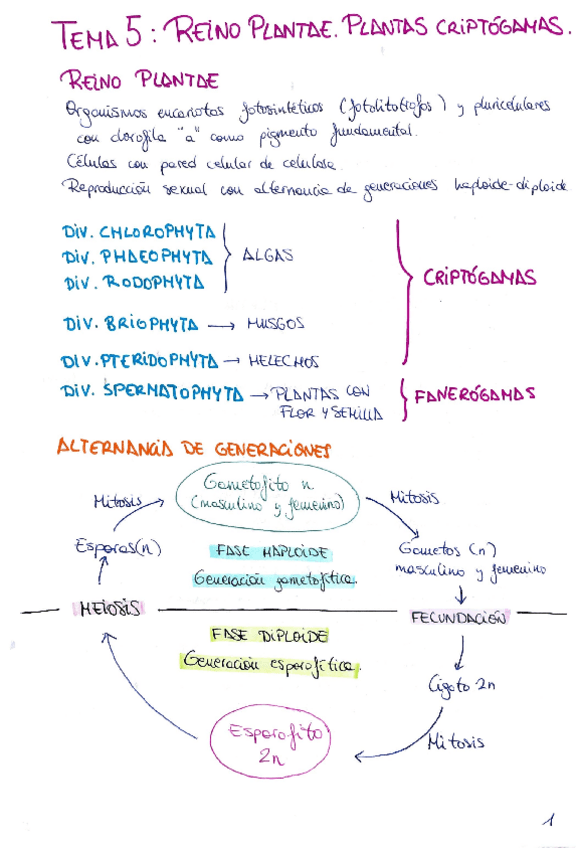 TEMA 5: REINO PLANTAE. PLANTAS CRIPTÓGAMAS.
REINO PLANTAE
Organismos eucariotas fotosintéticos (fotolitotrofos) y pluricelulares
con clorofila "a" como pigmento fundamental.
Células con pared celular de celulosa.
Reproducción sexual con alternancia de generaciones haploide-diploide
DIV. CHLOROPHYTA
DIV. PHAEOPHYTA
ALGAS
DIV. RODOPHYTA
CRIPTÓGAMAS
DIV. BRIOPHYTA → MUSGOS
DIV. PTERIDOPHYTA → HELECHOS
DIV. SPERMATOPHYTA → PLANTAS CON
FLOR Y SEMILLA
FANERÓGAMAS
ALTERNANCIA DE GENERACIONES
Gametofito n
(masculino y femenino)
Mitosis
Mitosis
Esporas(n)
FASE HAPLOIDE
Generación gametofítica.
Gametos (n)
masculino y femenino
MEIOSIS
FECUNDACIÓN
FASE DIPLOIDE
Generación esporofítica.
Cigoto 2n
Esporofito
2n
Mitosis
1